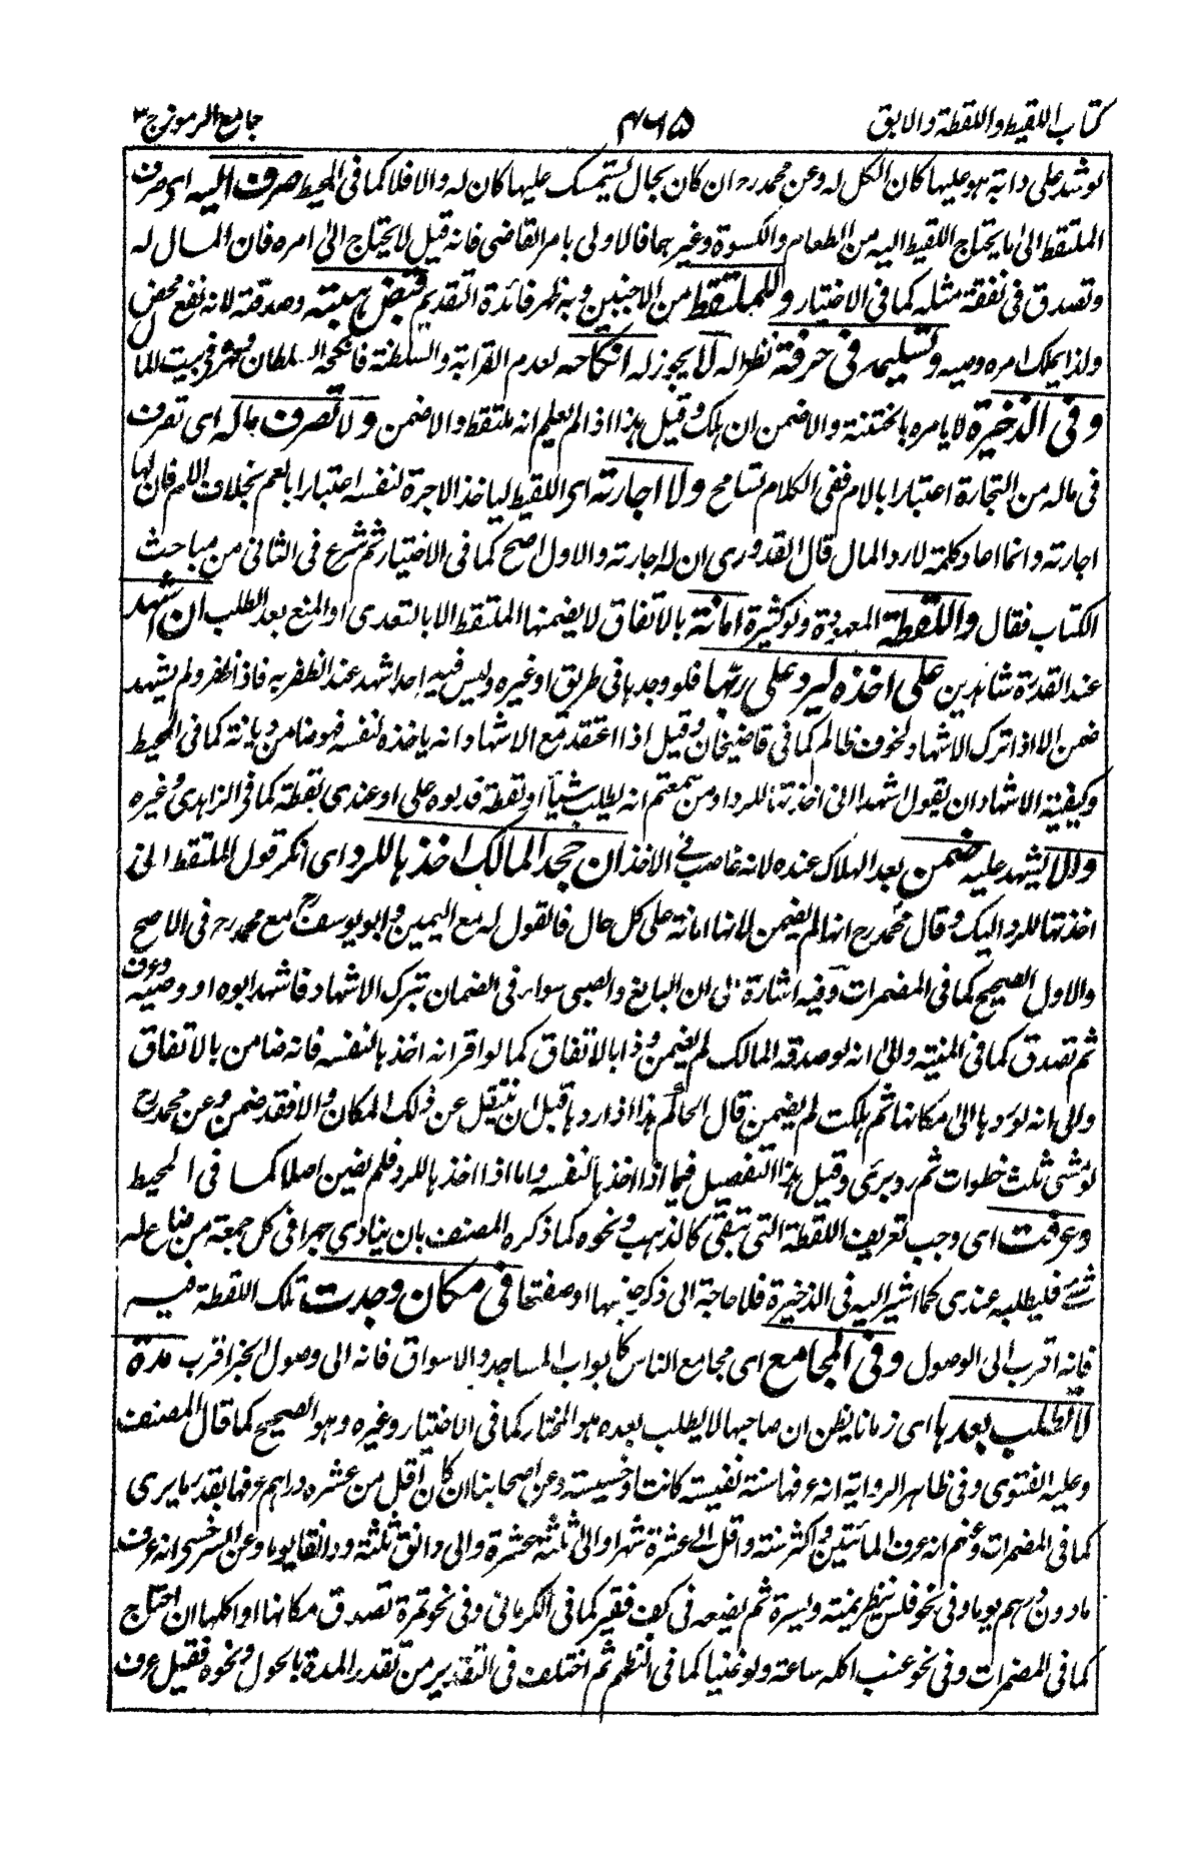 كتاب اللقيط واللقطة والابق ٤٦٥ جامع الرموز ج ٣
لو شد على دابة هو عليها كان الكل له وعن محمد رح ان كان بحال يستمسك عليها كان له والا فلا كما فى المحيط صرف اليه اى صرف
الملتقط الى ما يحتاج اللقيط اليه من الطعام والكسوة وغيرهما فالاولى بامر القاضى فانه قيل لا يحتاج الى امره فان المال له
وتصدق فى نفقة مثله كما فى الاختيار وللملتقط من الاجنبين وبه ظهر فائدة التقديم قبض هبته وصدقته لانه نفع محض
ولذا يملك امره وصيه وتسليمه فى حرفة نظرا له لا يجوز له انكاحه لعدم القرابة والسلطنة فانكحه السلطان ومهره فى بيت المال
وفى الذخيرة لا يامره بالختنة والا ضمن ان هلك وقيل هذا اذا لم يعلم انه ملتقط والا ضمن ولا تصرف ماله اى تصرف
فى ماله من التجارة اعتبارا بالام ففى الكلام تسامح ولا اجارته اى اللقيط لياخذ الاجرة لنفسه اعتبارا بالعم بخلاف الام فان لها
اجارته وانما اعاد كلمة لا رد المال قال القدورى ان له اجارته والاول اصح كما فى الاختيار ثم شرع فى الثانى من مباحث
الكتاب فقال واللقطة المعهودة ولو كثيرة امانة بالاتفاق لا يضمنها الملتقط الا بالتعدى او المنع بعد الطلب ان اشهد
عند القدرة شاهدين على اخذه ليرد على ربها فلو وجدها فى طريق او غيره وليس فيه احد اشهد عند الظفر به فاذا ظفر ولم يشهد
ضمن الا اذا ترك الاشهاد لخوف ظالم كما فى قاضيخان وقيل اذا اعتقد مع الاشهاد انه ياخذه لنفسه فهو ضامن ديانة كما فى المحيط
وكيفية الاشهاد ان يقول اشهدا انى اخذتها للرد او من سمعتم انه يطلب شيئا او لقطة فدلوه على او عندى لقطة كما فى الزاهدى وغيره
والا يشهد عليه ضمن بعد الهلاك عنده لانه غاصب فى الاخذ ان جحد المالك اخذها للرد اى انكر قول الملتقط انى
اخذتها للرد اليك وقال محمد رح انه لم يضمن لانها امانة على كل حال فالقول له مع اليمين وابو يوسف رح مع محمد رح فى الاصح
والاول الصحيح كما فى المضمرات وفيه اشارة الى ان البالغ والصبى سواء فى الضمان بترك الاشهاد فاشهد ابوه او وصيه وعرف
ثم تصدق كما فى المنية والى انه لو صدقه المالك لم يضمن وذا بالاتفاق كما لو اقر انه اخذها لنفسه فانه ضامن بالاتفاق
والى انه لو ردها الى مكانها ثم هلكت لم يضمن قال الحاكم هذا اذا ردها قبل ان ينتقل عن ذلك المكان والا فقد ضمن وعن محمد رح
لو مشى ثلث خطوات ثم رد برئ وقيل هذا التفصيل فيما اذا اخذها لنفسه واما اذا اخذها للرد فلم يضمن اصلا كما فى المحيط
وعرفت اى وجب تعريف اللقطة التى تبقى كالذهب ونحوه كما ذكره المصنف بان ينادى جهرا فى كل جمعة من ضاع له
شئ فليطلبه عندى كما اشير اليه فى الذخيرة فلا حاجة الى ذكر جنسها او صفتها فى مكان وجدت تلك اللقطة فيه
فانه اقرب الى الوصول وفى المجامع اى مجامع الناس كابواب المساجد والاسواق فانه الى وصول الخبر اقرب مدة
لا تطلب بعدها اى زمانا يظن ان صاحبها لا يطلب بعده هو المختار كما فى الاختيار وغيره وهو الصحيح كما قال المصنف
وعليه الفتوى وفى ظاهر الرواية انه عرفها سنة نفيسة كانت او خسيسة وعن اصحابنا ان كان اقل من عشرة دراهم عرفها بقدر ما يرى
كما فى المضمرات وعنهم انه عرف المأتين واكثر سنة واقل الى عشرة شهرا والى ثلثة عشرة والى دانق ثلثة ودانقا يوما وعن السرخسى انه عرف
ما دون درهم يوما وفى نحو فلس ينظر يمنة ويسرة ثم يضعه فى كف فقير كما فى الكرمانى وفى نحو تمرة تصدق مكانها او اكلها ان احتاج
كما فى المضمرات وفى نحو عنب اكله ساعته ولو غنيا كما فى النظم ثم اختلف فى التقدير من تقدر المدة بالحول ونحوه فقيل عرف